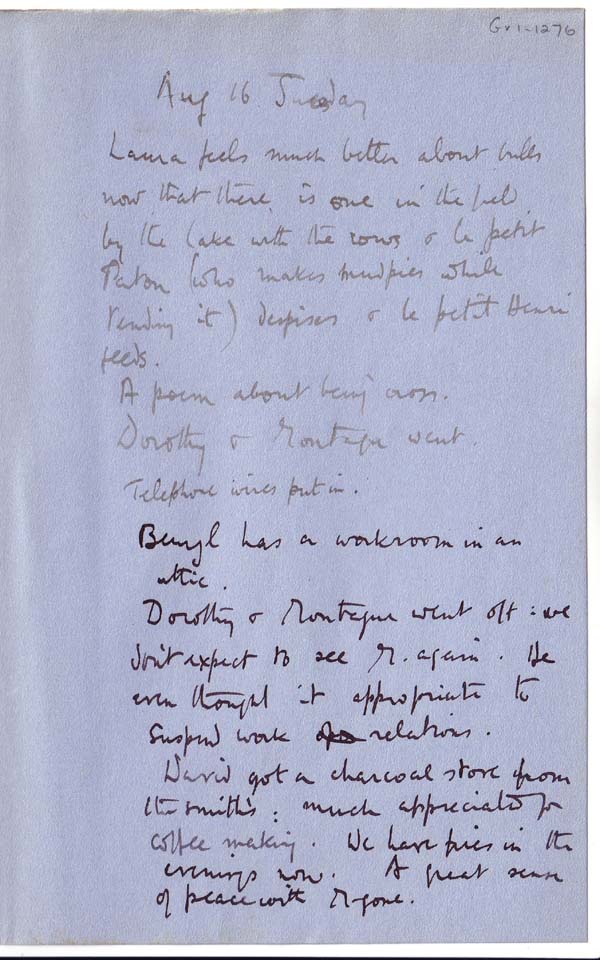 Gv1-1276
Aug 16 Tuesday
Laura feels much better about bulls
now that there is one in the field
by the lake with the cows & le petit
Paton (who makes mudpies while
tending it) despises & le petit Henri
feeds.
A poem about being cross.
Dorothy & Montague went.
Telephone wires put in.
Beryl has a workroom in an
attic.
Dorothy & Montague went off : we
don't expect to see M. again. He
even thought it appropriate to
suspend work relations.
David got a charcoal stove from
the smith's : much appreciated for
coffee making. We have fires in the
evenings now. A great sense
of peace with M gone.